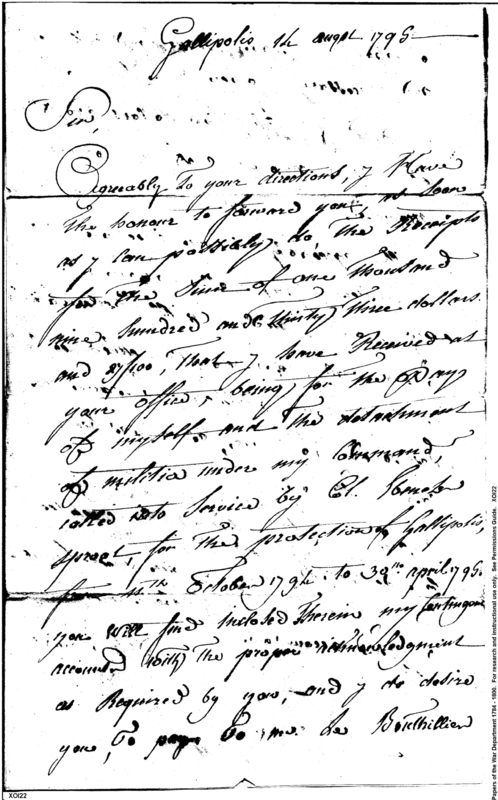 Gallipolis th augst 1795
Sir,
Agreeably to your directions, J Have
the honour to forward you, as soon
as J can possibly do, the Receipts
for the Sum of one thousand
nine hundred and thirty three dollars
and 87/100, that J have Received at
your office, being for the pay
of myself and the detachment
of militia under my Command,
called into Service by Cl.
Sproat, for the protection of Gallipolis,
from October 1794 to 30th april 1795.
you will find inclosed Therein my Contingent
account with the proper acknowledgment
as Required by you, and J do desire
you, to pay to mr. Le Bouthillier
XOI22
Papers of the War Department 1784 - 1800. For research and instructional use only. See Permissions Guide. XOI22